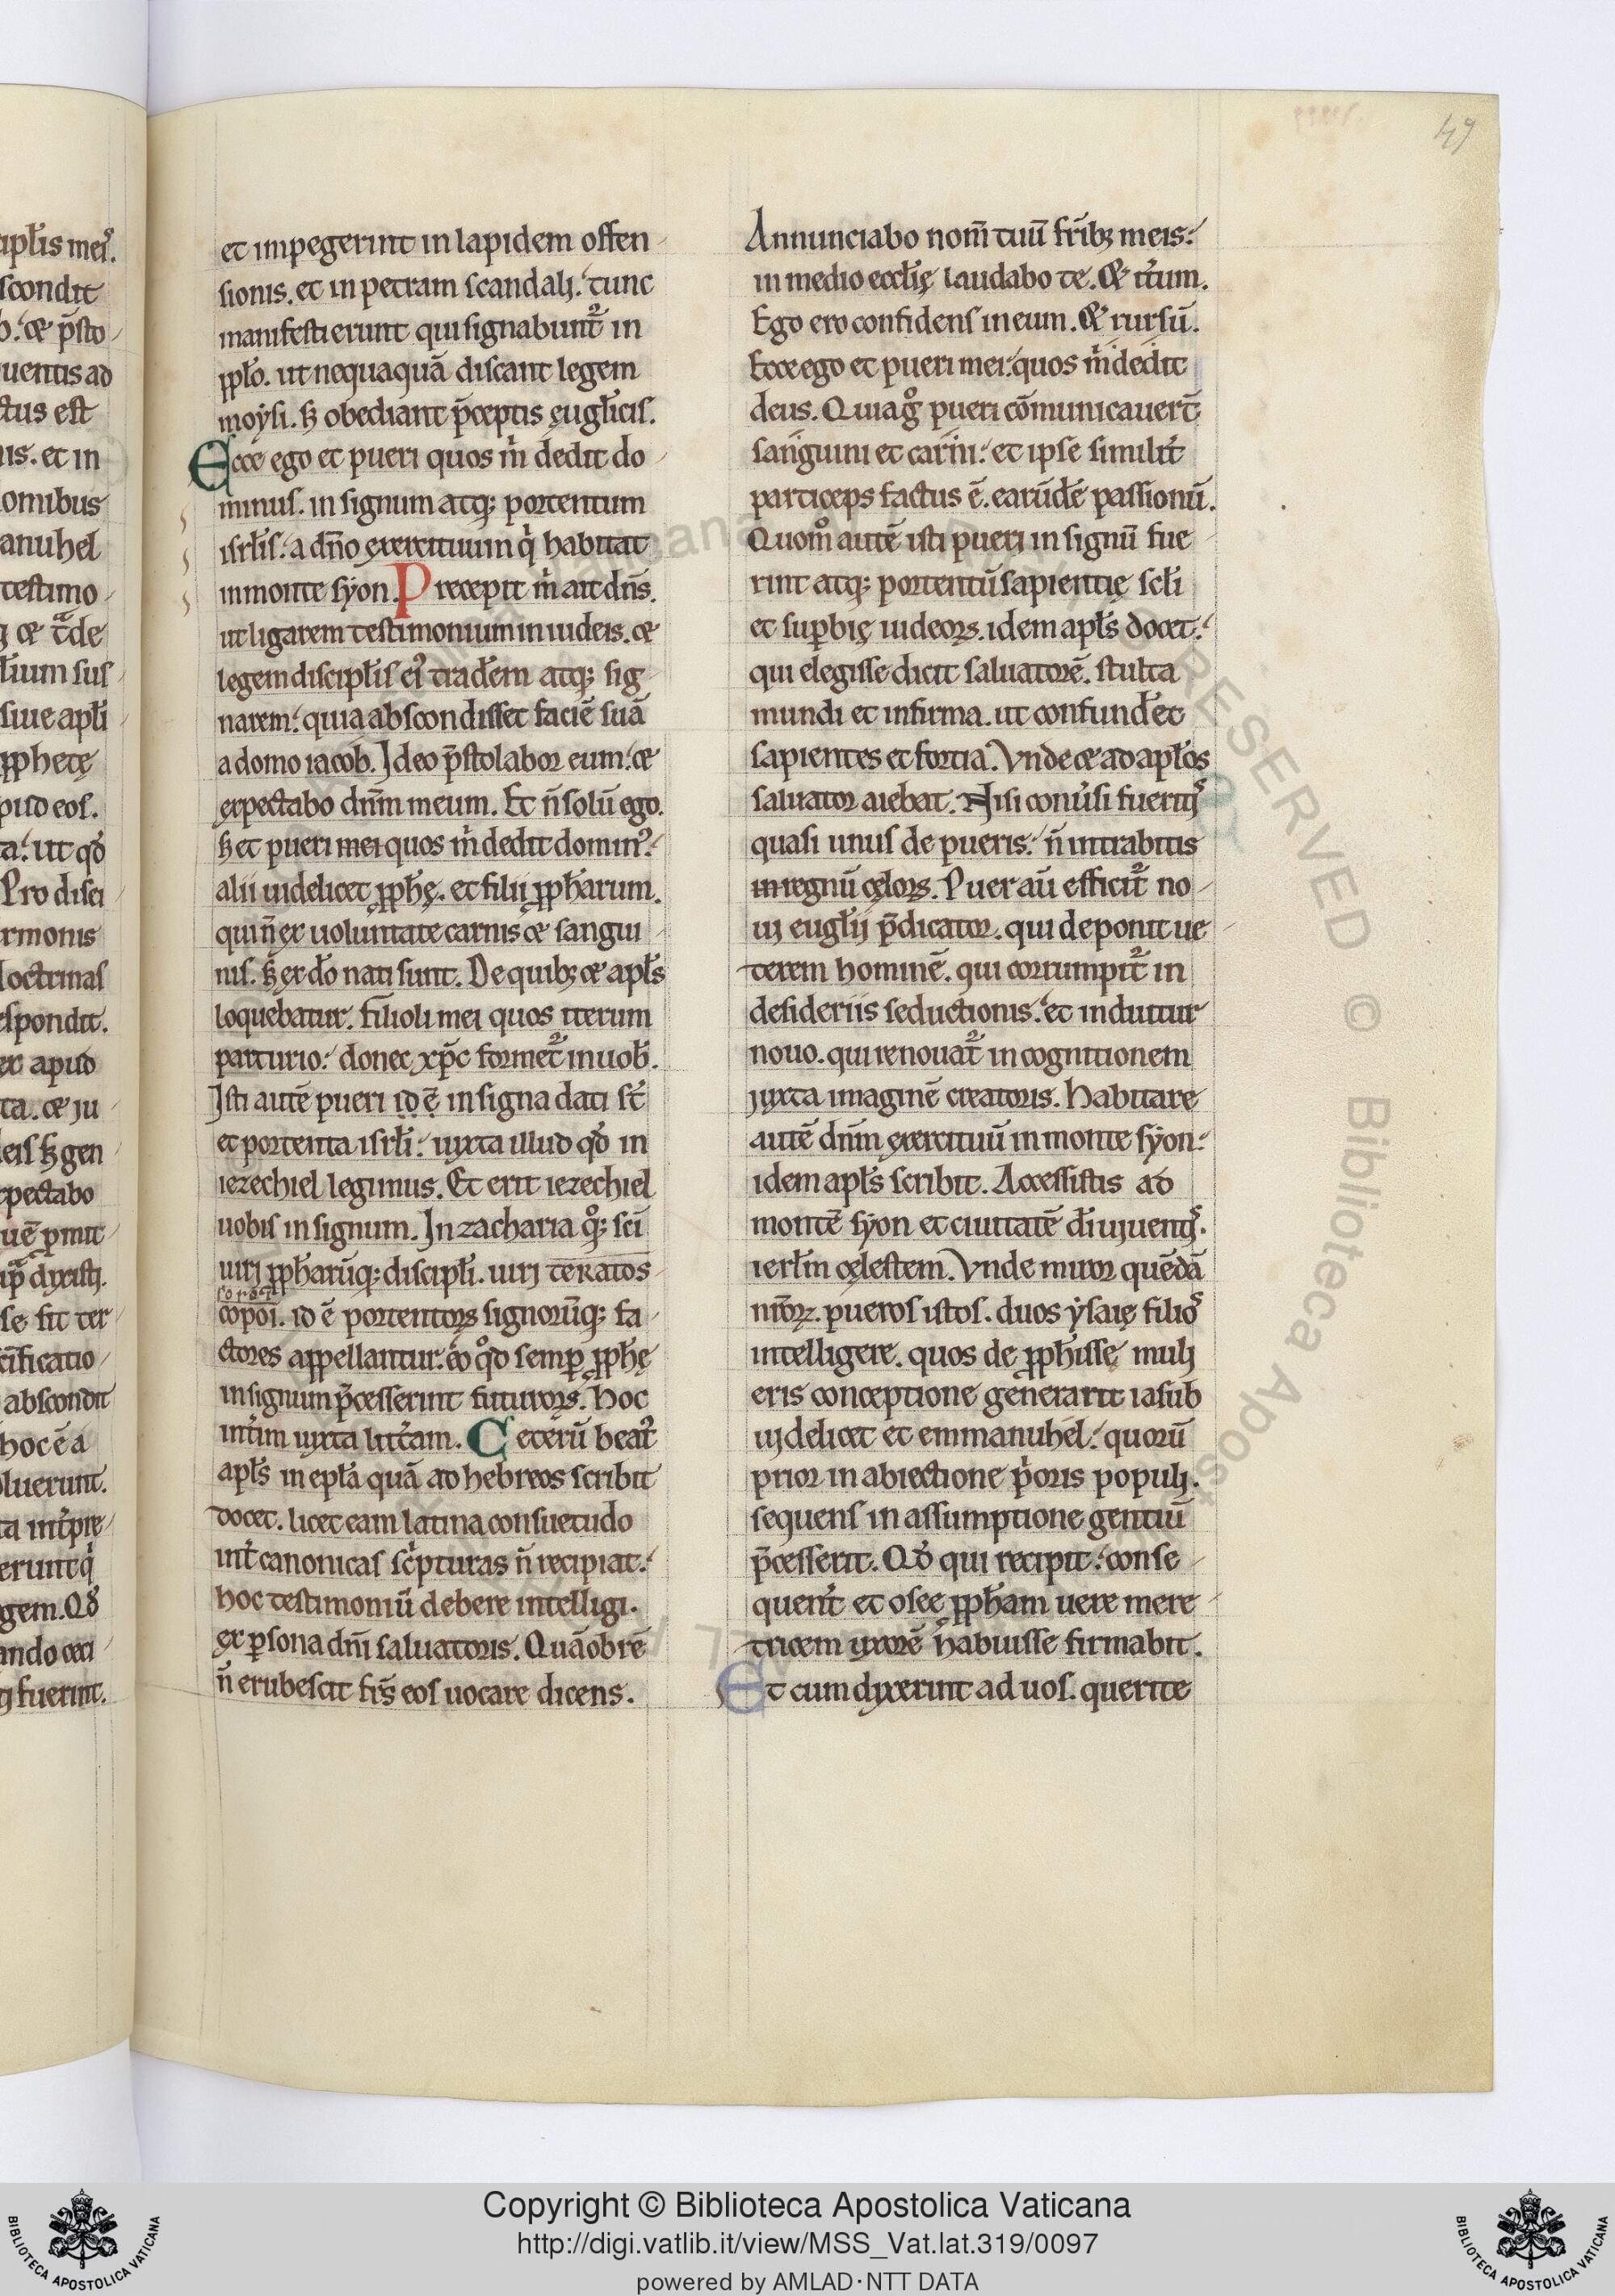 49
et impegerint in lapidem offen
sionis. et in petram scandali. tunc
manifesti erunt qui signabunt᷑ in
pplo. ut nequaquā discant legem
moẏsi. sꝫ obediant p̄ceptis ęuglicis.
Ecce ego et pueri quos m̊ dedit do
minus. in signum atq; portentum
isrlis. a dn̄o exercituum q̇ habitat
in monte sẏon. Precepit m̊ ait dn̄s.
ut ligarem testimonium in iudeis. et
legem disciplis ei᷒ tradem atq; sig
narem. quia abscondisset faciē suā
a domo iacob. Ideo p̄stolabor eum. et
expectabo dn̄m meum. Et n̄ solū ego.
sꝫ et pueri mei quos m̊ dedit domin᷒.
alii uidelicet pphę. et filii ppharum.
qui n̄ ex uoluntate carnis et sangui
nis. sꝫ ex do nati sunt. De quibꝫ et apls
loquebatur. Filioli mei quos iterum
parturio. donec xp̄c formet᷑ in uob.
Isti autē pueri id ē in signa dati st̄
et portenta isrli. iuxta illud qd in
iezechiel legimus. Et erit iezechiel
uobis in signum. In zacharia q°; sci
uiri ppharūq; discipli. uiri teratos
copoi. id ē portentoꝝ signorūq; fa
ctores appellantur. eo qd semꝑ pphę
in signum p̄cesserint futuroꝝ. Hoc
int̄im iuxta litt̄am. Ceterū beat᷒
apls in epła quā ad hebreos scribit
docet. licet eam latina consuetudo
int̄ canonicas sc̊pturas n̄ recipiat.
hoc testimoniū debere intelligi.
ex ꝑsona dn̄i saluatoris. Quāobrē
n̄ erubescit frs̄ eos uocare dicens.
Annunciabo nom̄ tuū frībꝫ meis.
in medio ecclię laudabo te. Et it̄um.
Ego ero confidens in eum. Et rursū.
Ecce ego et pueri mei. quos m̊ dedit
deus. Quia g° pueri cōmunicauert̄
sanguini et carni. et ipse similit̄
particeps factus ē. earūdē passionū.
Quom° autē isti pueri in signū fue
rint atq; portentū sapientię scli
et suꝑbię iudeoꝝ. idem apls docet.
qui elegisse dicit saluatorē. stulta
mundi et infirma. ut confundet
sapientes et fortia. Vnde et ad aplos
saluator aiebat. Nisi conūsi fuerit᷒
quasi unus de pueris. n̄ intrabitis
in regnū cęloꝝ. Puer aū efficit᷑ no
ui euglii p̄dicator. qui deponit ue
terem hominē. qui corrumpit᷑ in
desideriis seductionis. et induitur
nouo. qui renouat᷑ in cognitionem
iuxta imaginē creatoris. Habitare
autē dn̄m exercituū in monte sẏon.
idem apls scribit. Accessistis ad
montē sẏon et ciuitatē di uiuent᷒.
ierlm cęlestem. Vnde miror quēdā
nr̄oꝝ. pueros istos. duos ẏsaię filio᷒
intelligere. quos de pphisse muli
eris conceptione generarit iasub
uidelicet et emmanuhel. quorū
prior in abiectione p̊oris populi.
sequens in assumptione gentiū
p̄cesserit. Qd qui recipit. conse
quent̄ et osee ppham uere mere
tricem uxorē habuisse firmabit.
Et cum dyxerint ad uos. querite
Copyright © Biblioteca Apostolica Vaticana
http://digi.vatlib.it/view/MSS_Vat.lat.319/0097
powered by AMLAD·NTT DATA